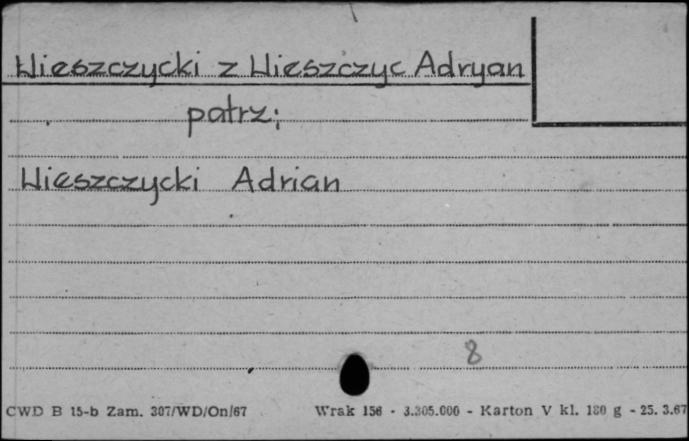 Wieszczycki z Wieszczyc Adryan
patrz;
Wieszczycki Adrian
8
CWD B 15-b Zam. 307/WD/On/67 Wrak 156 - 3.305.000 - Karton V kl. 180 g - 25. 3.67